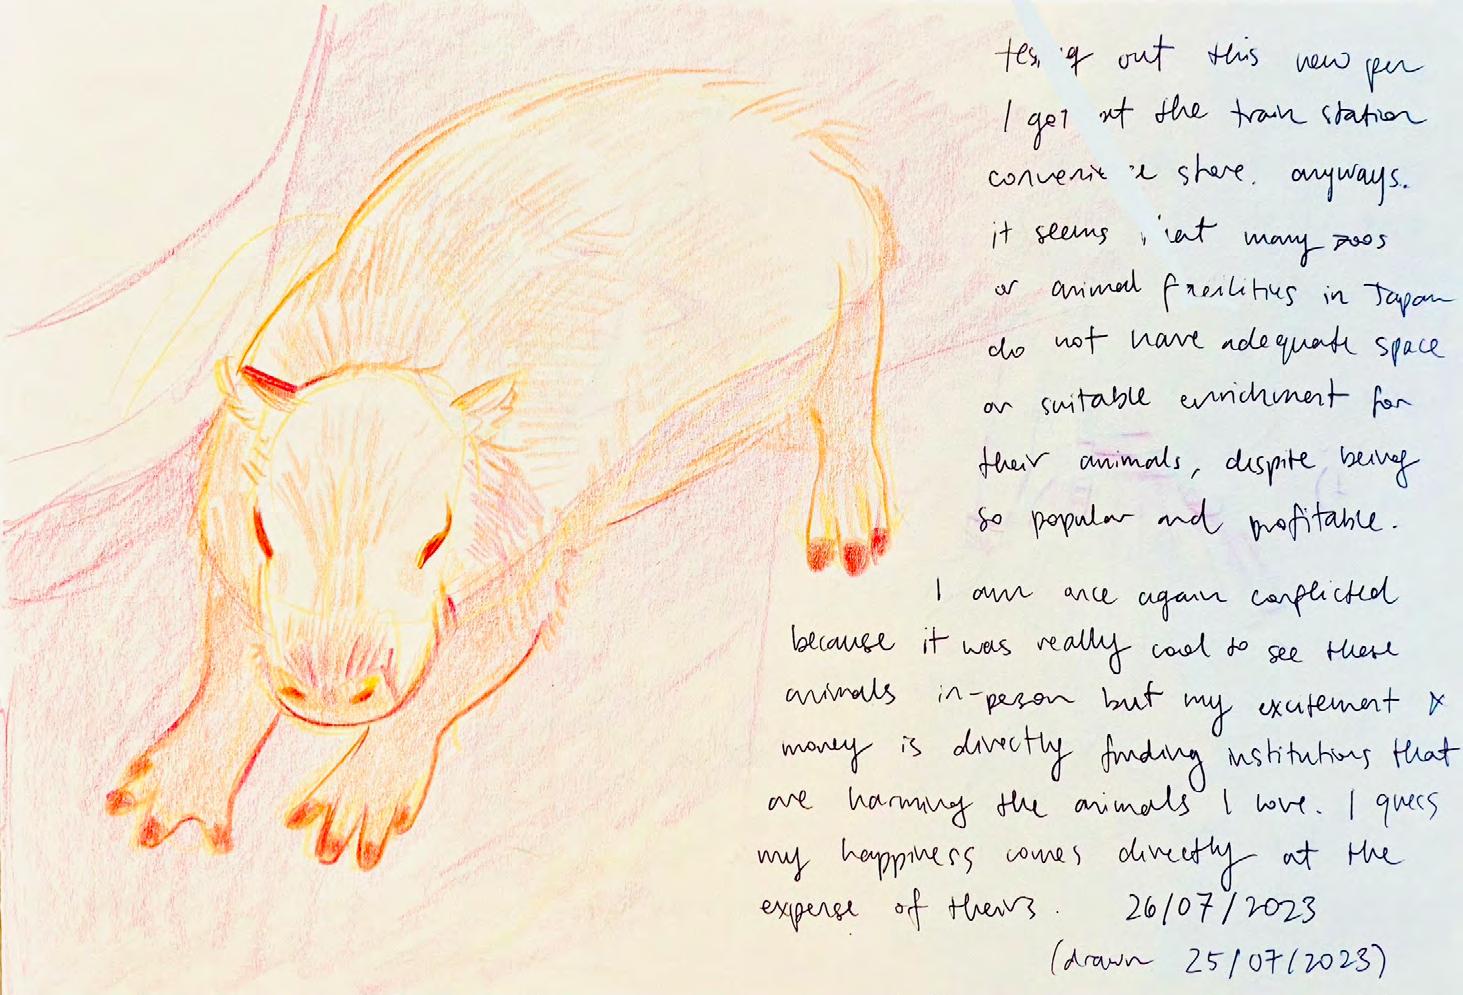 testing out this new pen
I got at the train station
convenience store. anyways.
it seems that many zoos
or animal facilities in Japan
do not have adequate space
or suitable enrichment for
their animals, dispite being
so popular and profitable.
I am once again conflicted
because it was really cool to see these
animals in-person but my excitement &
money is directly funding institutions that
are harming the animals I love. I guess
my happiness comes directly at the
expense of theirs. 26/07/2023
(drawn 25/07/2023)